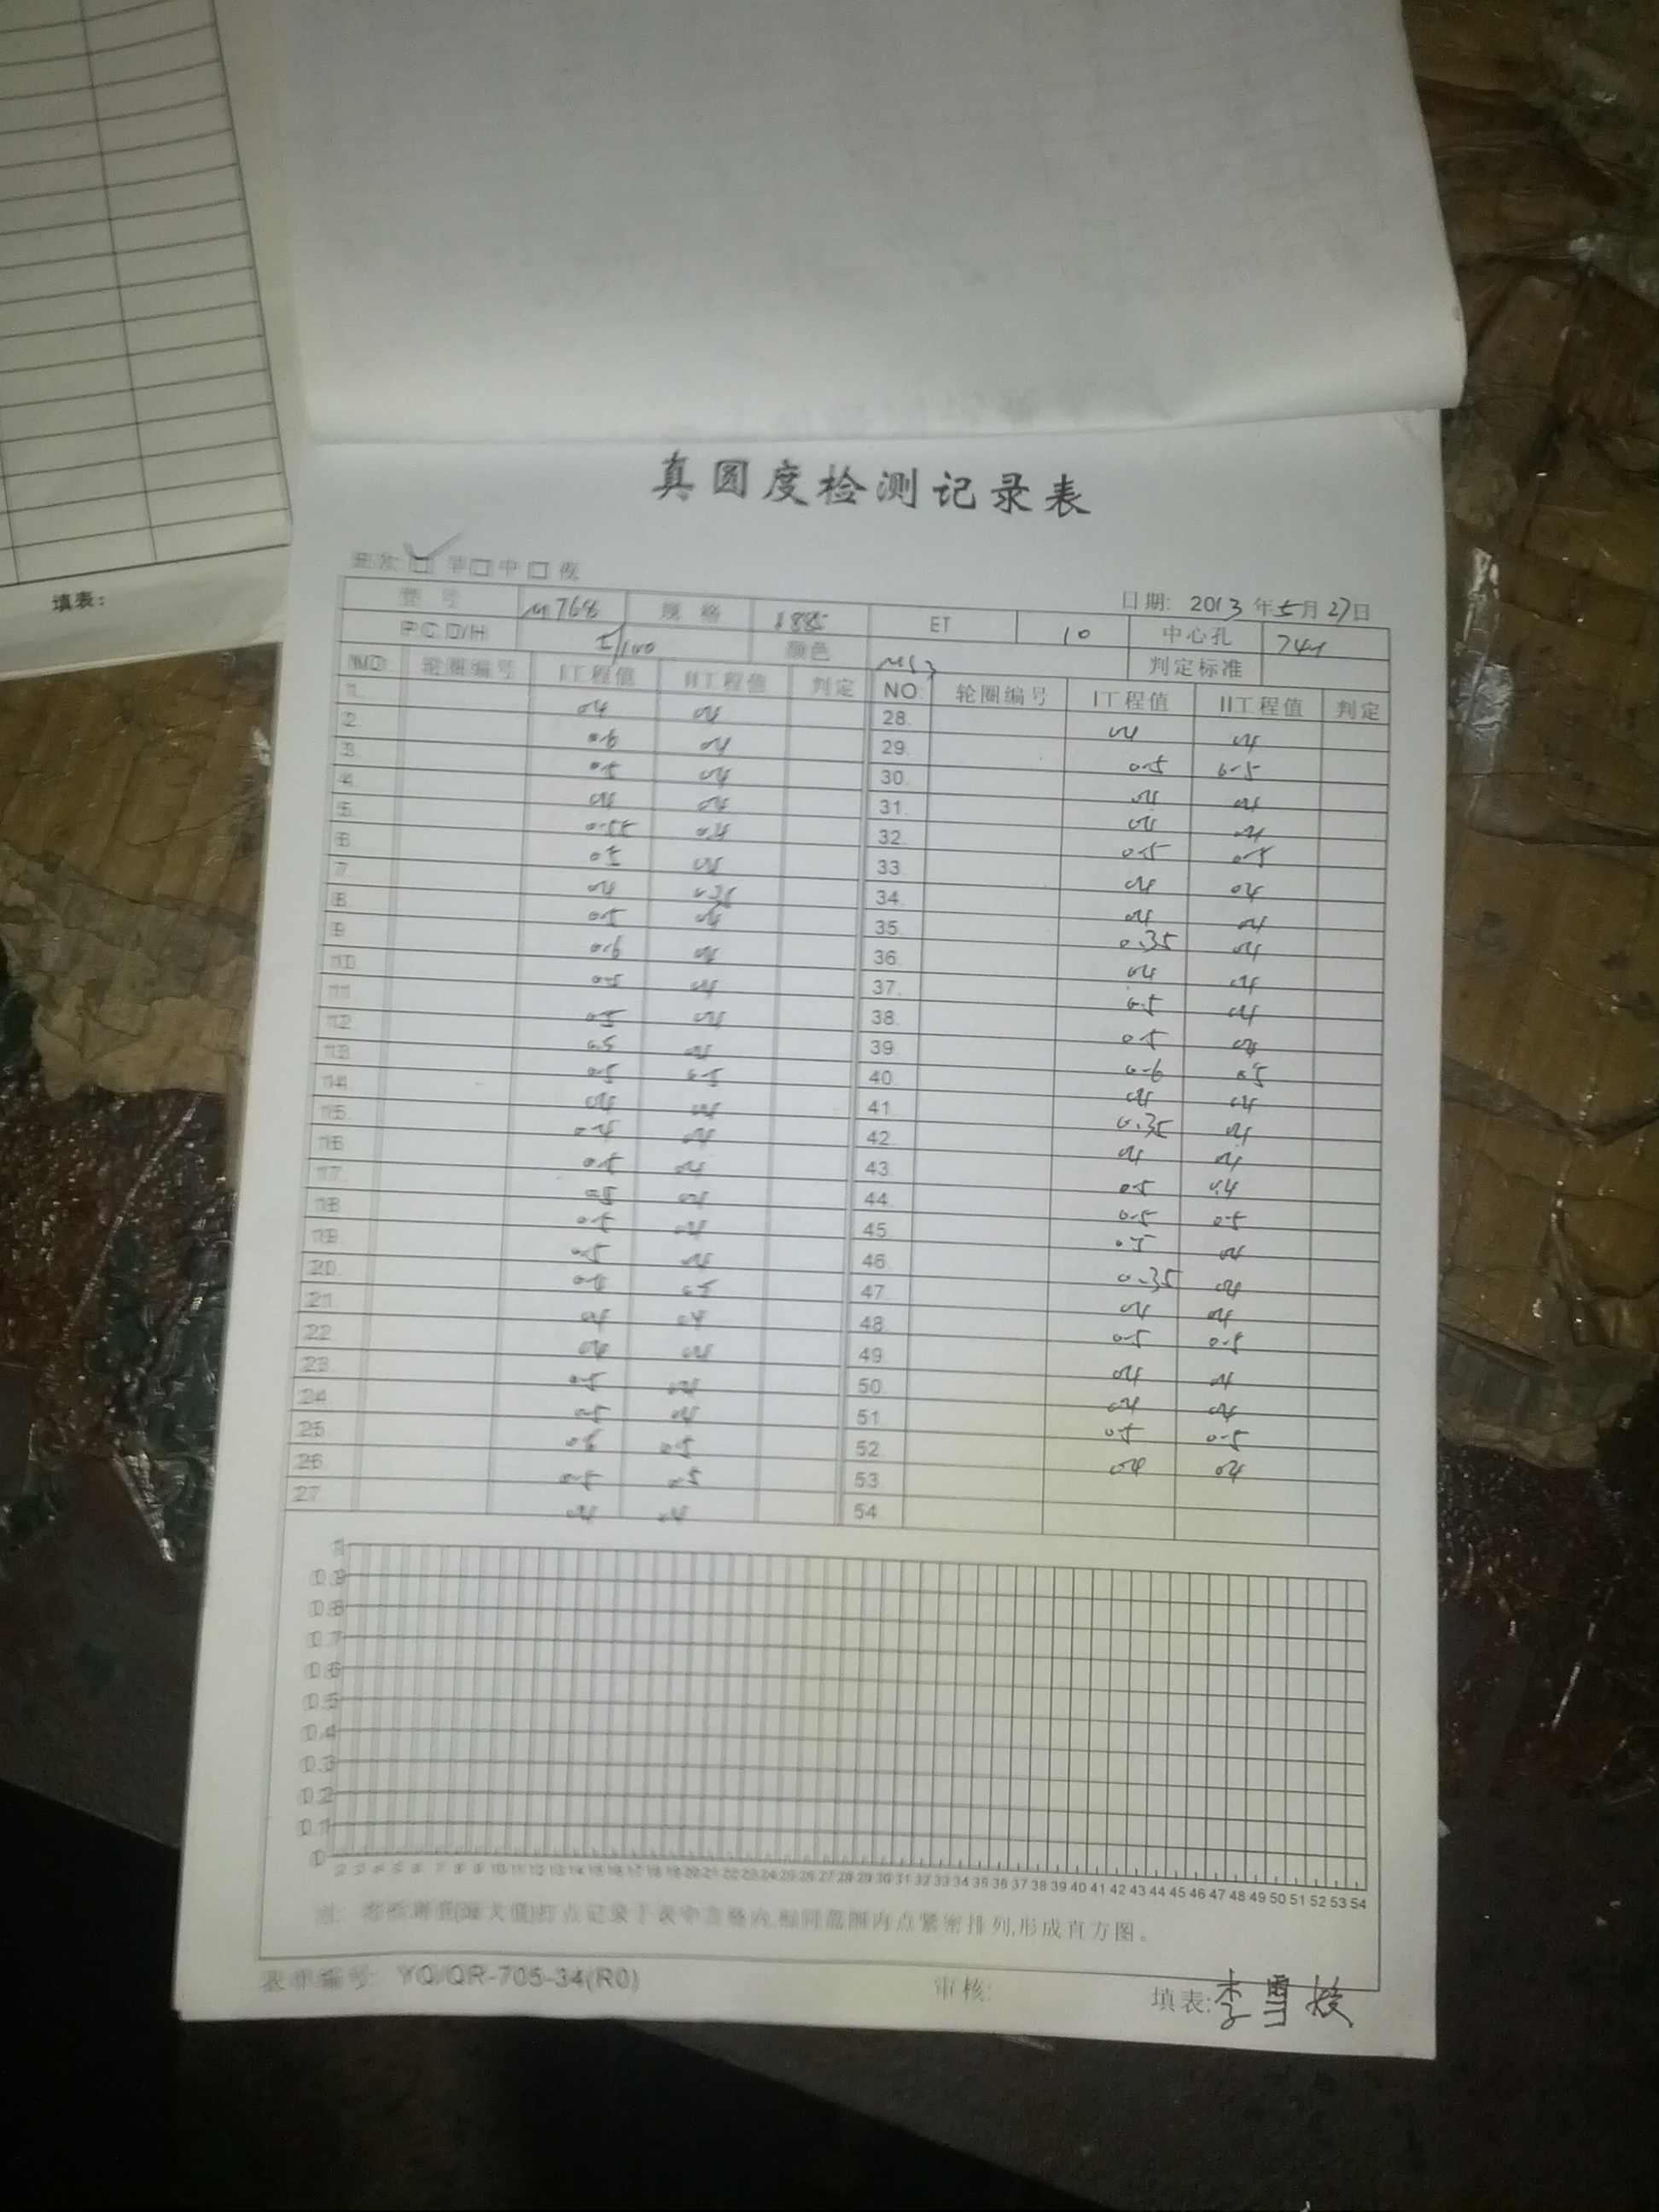 填表:
真圆度检测记录表
班次: 早 中 夜
日期: 2013年5月27日
型号 M768 规格 1885 ET 10 中心孔 741
P.C.D/H 5/100 颜色 判定标准
NO 轮圈编号 I工程值 II工程值 判定 NO: 轮圈编号 I工程值 II工程值 判定
1 0.4 0.4 28. 0.4 0.4
2. 0.6 0.4 29. 0.5 0.5
3 0.5 0.4 30. 0.4 0.4
4 0.4 0.4 31. 0.4 0.4
5. 0.55 0.4 32. 0.5 0.5
6 0.5 0.4 33. 0.4 0.4
7. 0.4 0.35 34. 0.4 0.4
8 0.5 0.4 35. 0.35 0.4
9. 0.6 0.4 36. 0.4 0.4
10. 0.5 0.4 37. 0.5 0.4
11. 0.5 0.4 38. 0.5 0.4
12. 0.5 0.4 39 0.6 0.5
13. 0.5 0.5 40. 0.4 0.4
14. 0.4 0.4 41. 0.35 0.4
15. 0.4 0.4 42. 0.4 0.4
16. 0.5 0.4 43. 0.5 0.4
17. 0.5 0.4 44. 0.5 0.5
18. 0.5 0.4 45. 0.5 0.4
19. 0.5 0.4 46. 0.35 0.4
20. 0.4 0.5 47. 0.4 0.4
21 0.4 0.4 48. 0.5 0.5
22 0.4 0.4 49. 0.4 0.4
23. 0.5 0.4 50. 0.4 0.4
24. 0.5 0.4 51. 0.5 0.5
25. 0.6 0.5 52. 0.4 0.4
26. 0.5 0.5 53.
27. 0.4 0.4 54.
1
0.9
0.8
0.7
0.6
0.5
0.4
0.3
0.2
0.1
0
2 3 4 5 6 7 8 9 10 11 12 13 14 15 16 17 18 19 20 21 22 23 24 25 26 27 28 29 30 31 32 33 34 35 36 37 38 39 40 41 42 43 44 45 46 47 48 49 50 51 52 53 54
注: 将检测值(最大值)打点记录于表中方格内,相同范围内点紧密排列,形成直方图。
表单编号: YQ/QR-705-34(R0) 审核: 填表: 李雪